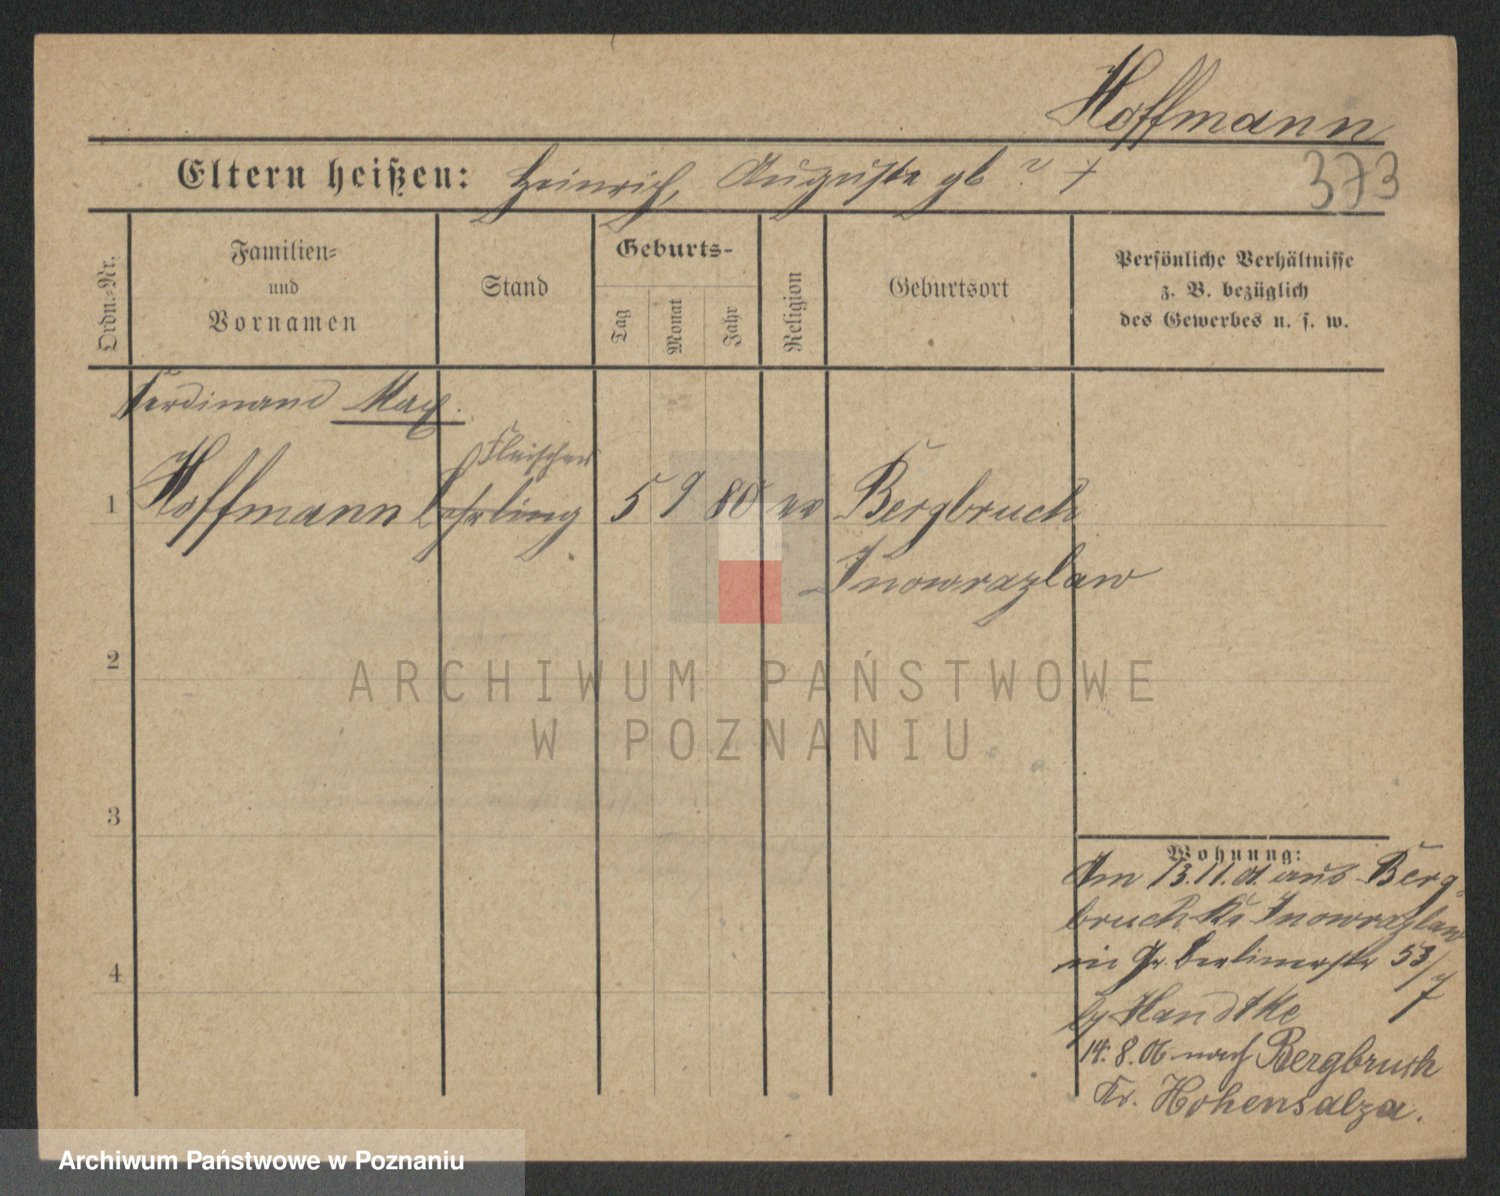 Hoffmann
373
Eltern heißen: Heinrich, Auguste gb ? +
Ordn.-Nr.
Familien-
und
Vornamen
Stand
Geburts-
Tag
Monat
Jahr
Religion
Geburtsort
Persönliche Verhältnisse
z. B. bezüglich
des Gewerbes u. s. w.
Ferdinand Max.
Fleischer
1 Hoffmann Lehrling 5 9 80 ev Bergbruch
Inowrazlaw
2
ARCHIWUM PAŃSTWOWE
W POZNANIU
3
4
Wohnung:
Am 13.11.01 aus Berg-
bruch Kr Inowrazlaw
in Gr. Berlinerstr 53/7
by Handtke
14.8.06 nach Bergbruch
Kr. Hohensalza.
Archiwum Państwowe w Poznaniu